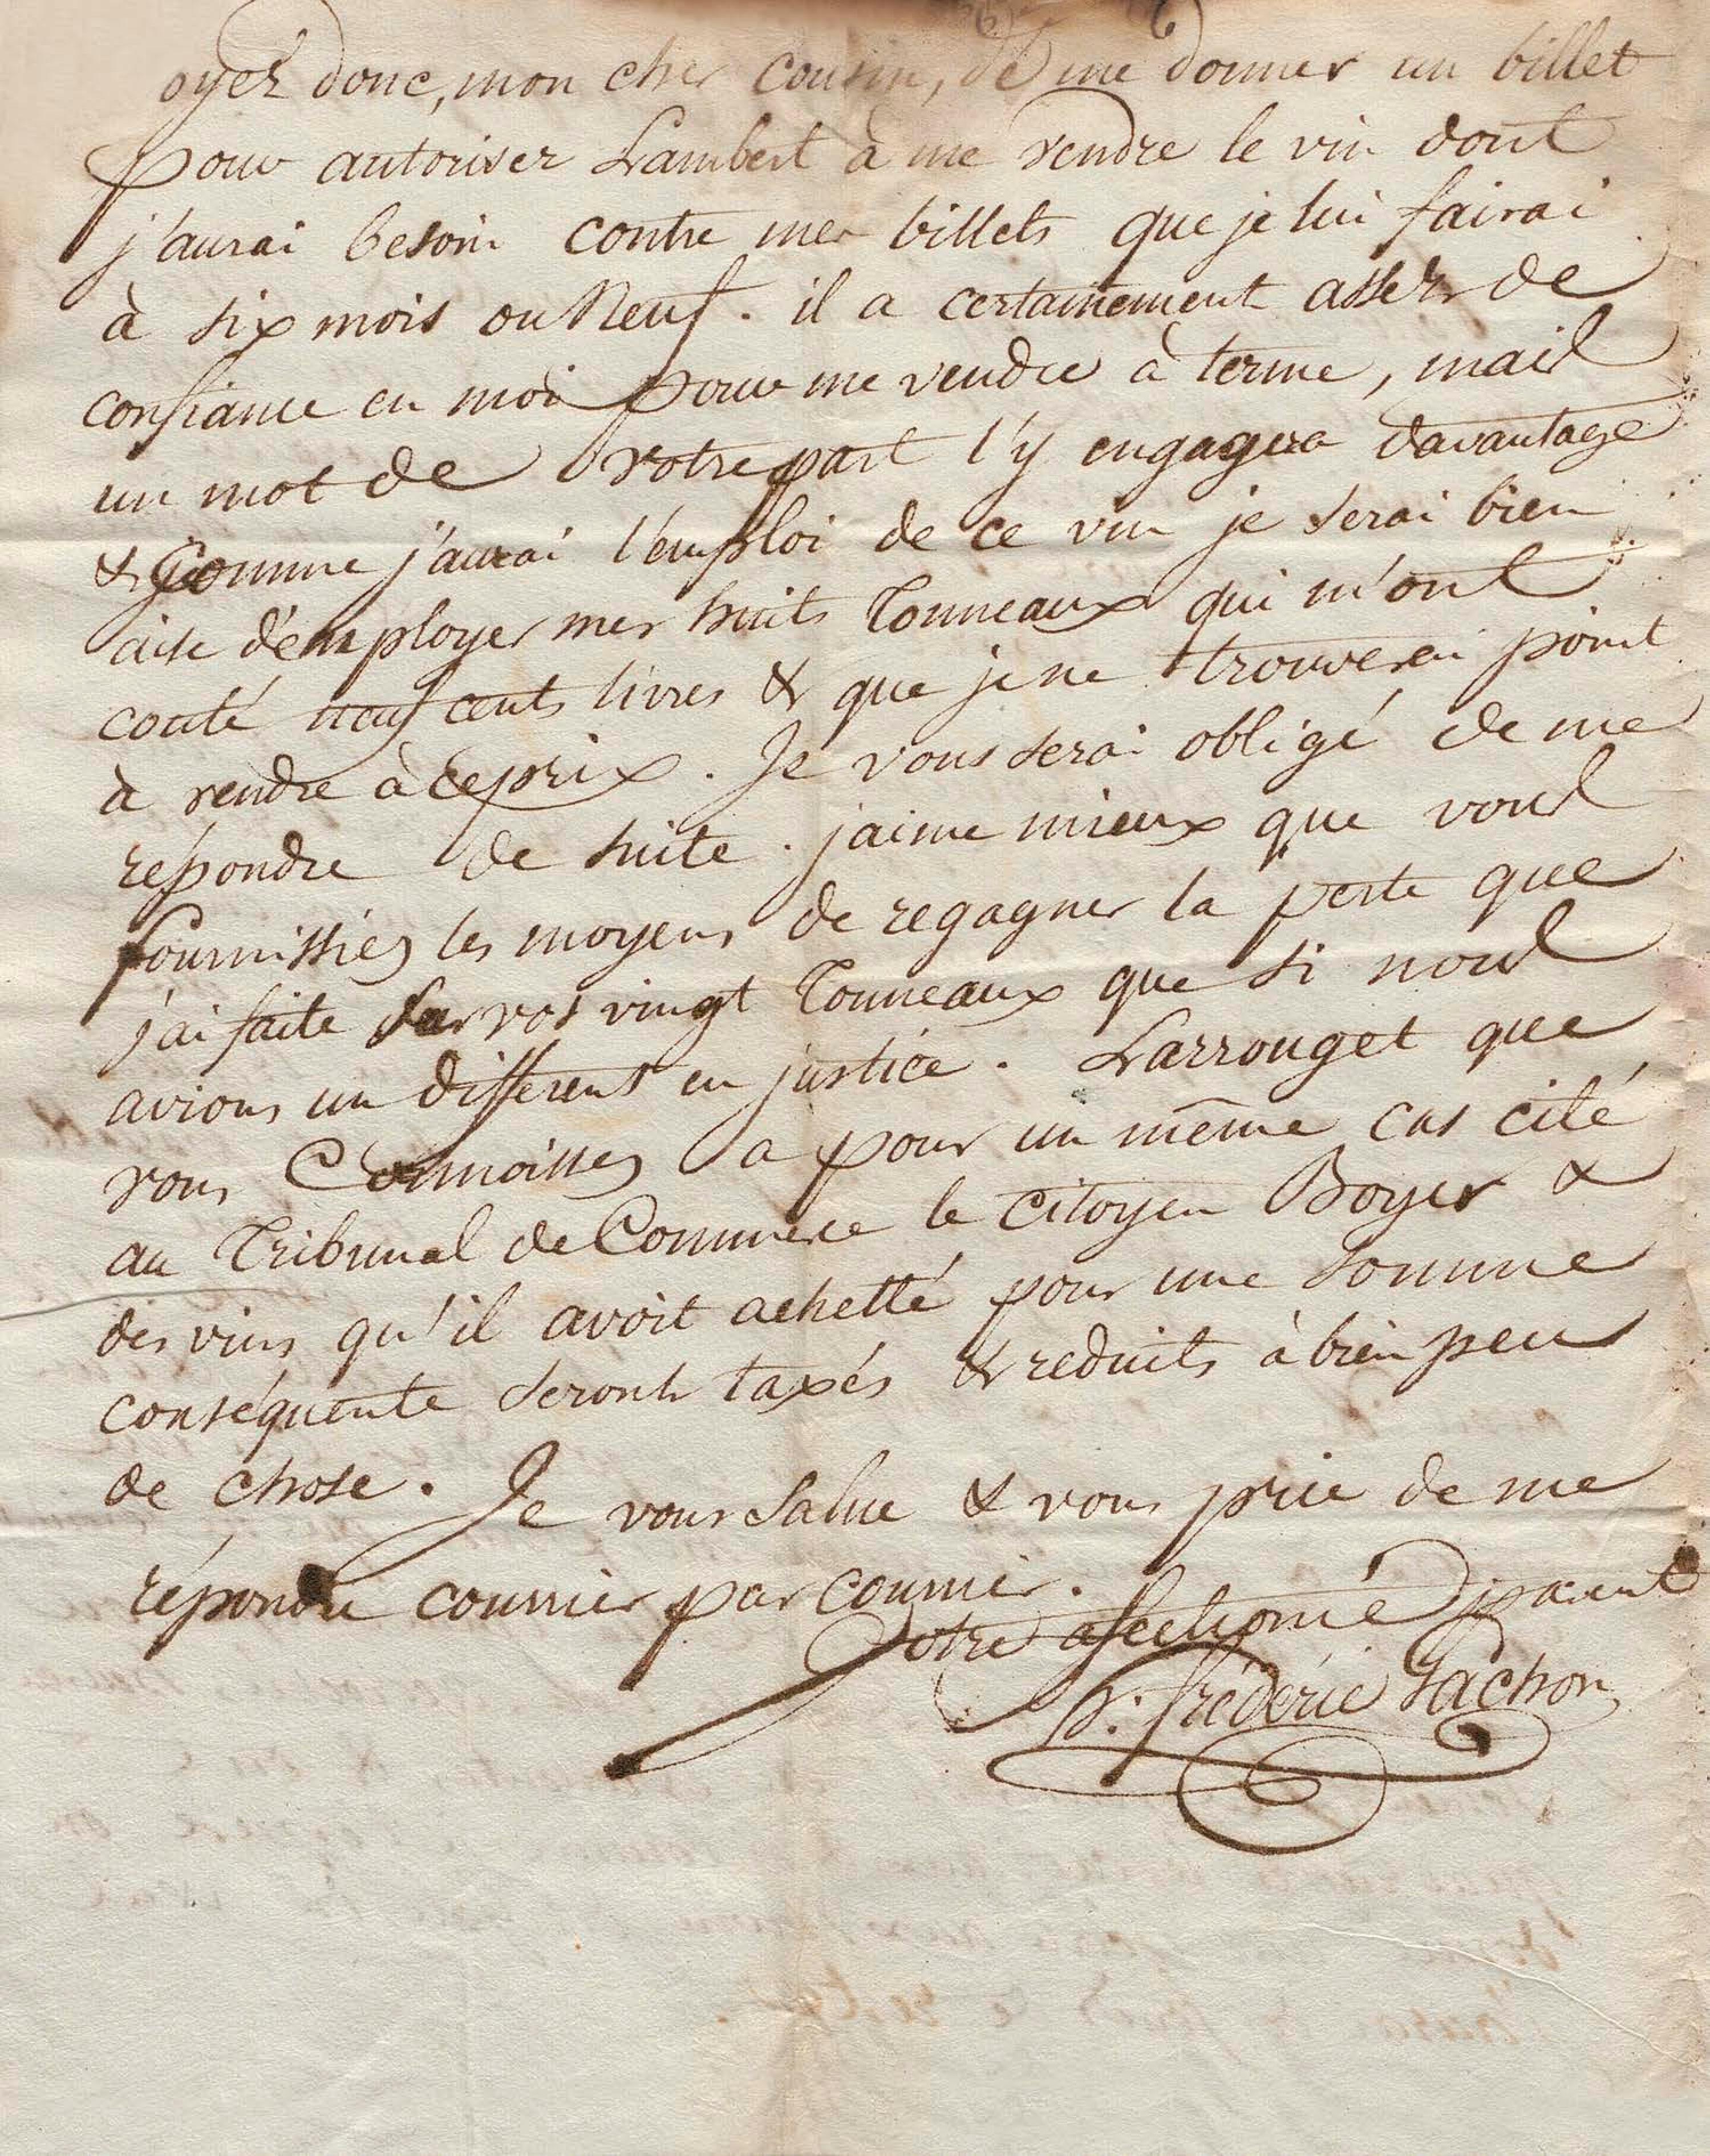 oyez donc, mon cher cousin, de me donner un billet
pour autoriser Lambert à me vendre le vin dont
j'aurai besoin contre mes billets que je lui fairai
à six mois ou neuf. il a certainement assez de
confiance en moi pour me vendre à terme, mais
un mot de votre part l'y engagera davantage
& comme j'aurai l'emploi de ce vin je serai bien
aise d'employer mes huits Tonneaux qui m'ont
couté neuf cents livres & que je ne trouverai point
à vendre à ce prix. Je vous serai obligé de me
répondre de suite. j'aime mieux que vous
fournissiez les moyens de regagner la perte que
j'ai faite sur vos vingt Tonneaux que si nous
avions un différent en justice. Larrouget que
vous Connoissez a pour un même cas cité
au Tribunal de Commerce le Citoyen Boyer &
des vins qu'il avoit achetté pour une somme
conséquente seront taxés & reduits à bien peu
de chose. Je vous salue & vous prie de me
répondre courrier par courrier.
Votre afectionné parent
frédéric Pachon